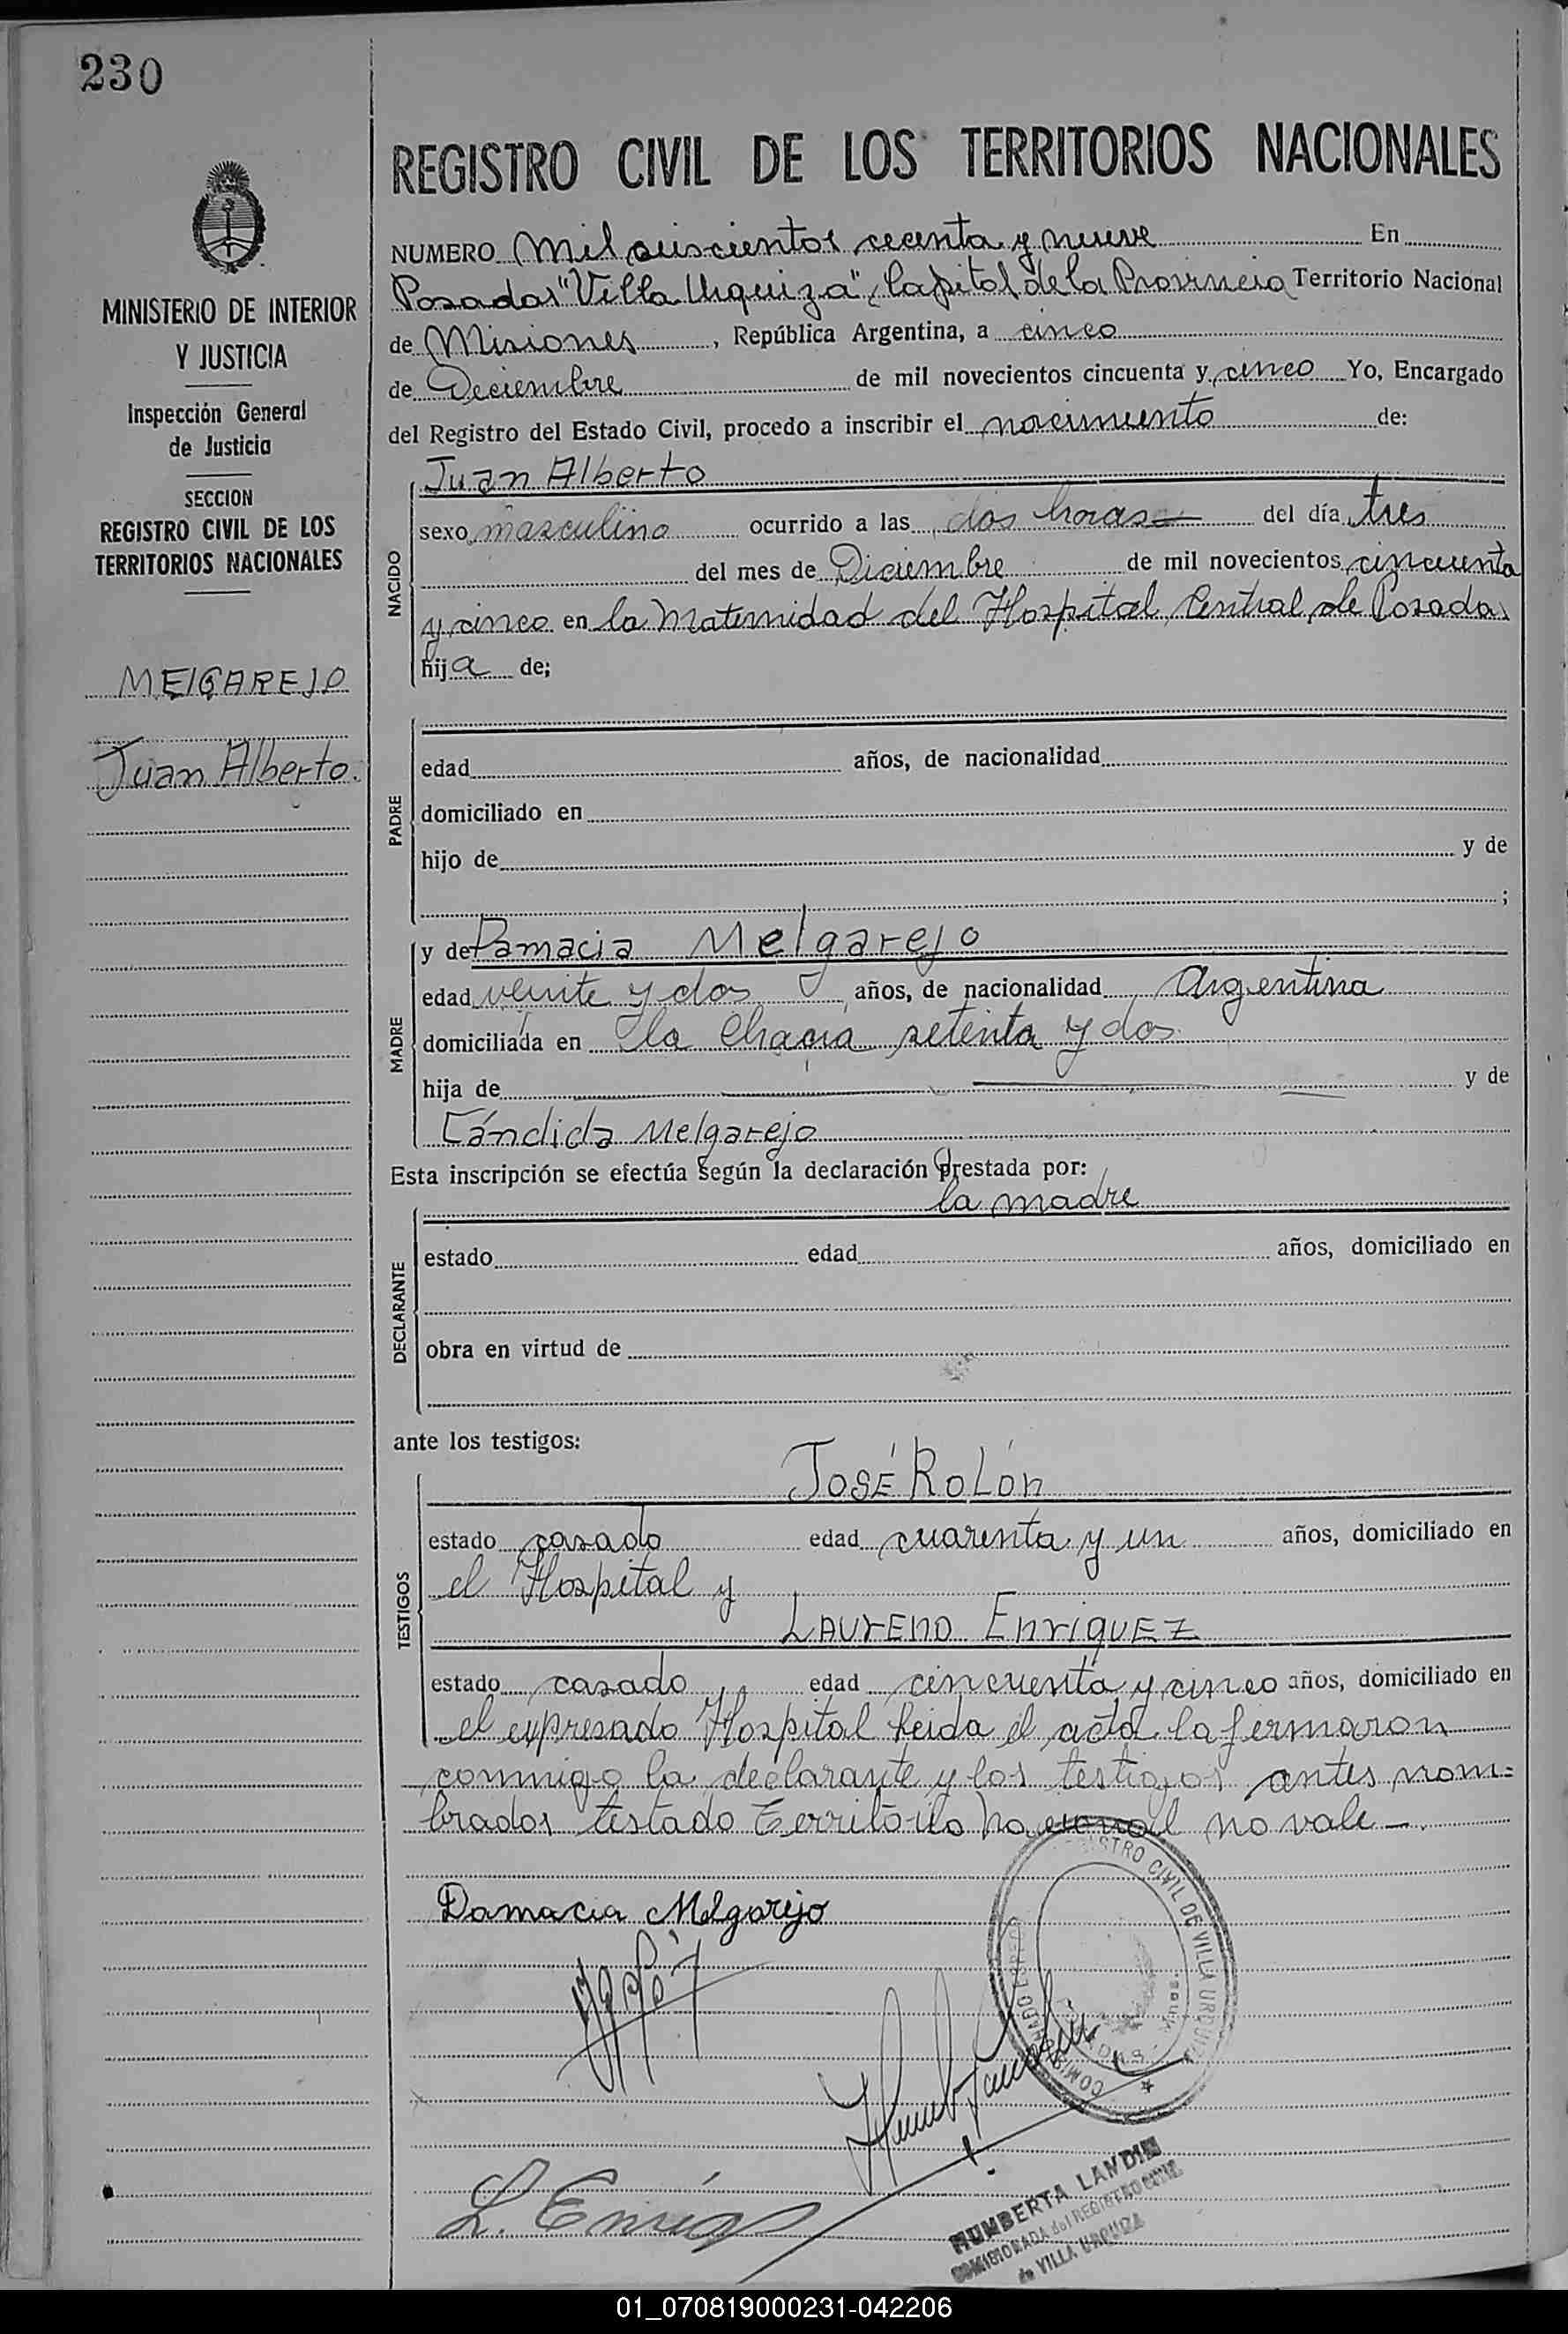 230
REGISTRO CIVIL DE LOS TERRITORIOS NACIONALES
MINISTERIO DE INTERIOR
Y JUSTICIA
Inspección General
de Justicia
SECCION
REGISTRO CIVIL DE LOS
TERRITORIOS NACIONALES
MELGAREJO
Juan Alberto.
NUMERO Mil seiscientos secenta y nueve En
Posadas "Villa Urquiza", Capital de la Provincia Territorio Nacional
de Misiones, República Argentina, a cinco
de Deciembre de mil novecientos cincuenta y cinco Yo, Encargado
del Registro del Estado Civil, procedo a inscribir el nacimiento de:
NACIDO
Juan Alberto
sexo masculino ocurrido a las dos horas del día tres
del mes de Diciembre de mil novecientos cincuenta
y cinco en la Maternidad del Hospital Central de Posadas
hija de;
PADRE
edad años, de nacionalidad
domiciliado en
hijo de y de
;
MADRE
y de Damacia Melgarejo
edad veinte y dos años, de nacionalidad Argentina
domiciliada en la Chacra setenta y dos
hija de y de
Cándida Melgarejo
Esta inscripción se efectúa según la declaración prestada por:
DECLARANTE
la madre
estado edad años, domiciliado en
obra en virtud de
ante los testigos:
TESTIGOS
JOSÉ ROLÓN
estado casado edad cuarenta y un años, domiciliado en
el Hospital y
LAURENO ENRIQUEZ
estado casado edad cincuenta y cinco años, domiciliado en
el expresado Hospital Leida el acta la fermaron
conmigo la declarante y los testigos antes nom=
brados testado Territorio Nacional no vale —.
Damacia Melgarejo
REGISTRO CIVIL DE VILLA URQUIZA
L. Enriq
HUMBERTA LANDIN
COMISIONADA del REGISTRO CIVIL
de VILLA URQUIZA
01_070819000231-042206